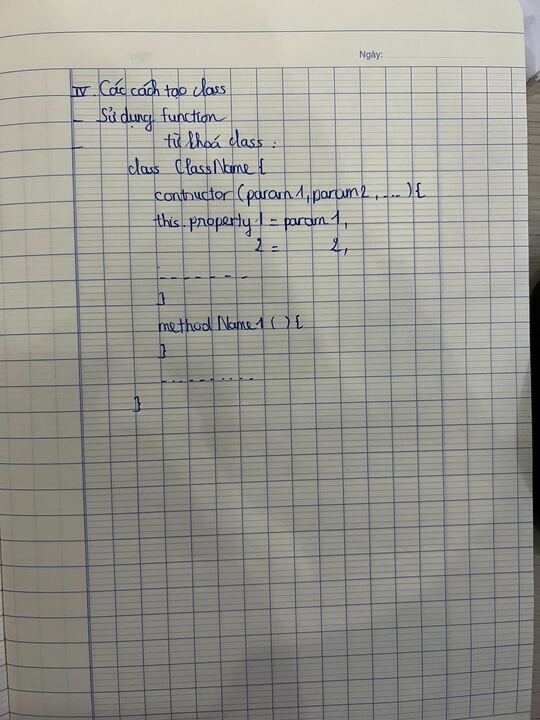 Ngày:
IV. Các cách tạo class
- Sử dụng function
- từ khoá class:
class ClassName {
contructor (param1, param2, ...) {
this.property1 = param1,
2 = 2,
. - - - - - - -
}
methodName1 ( ) {
}
..........
}